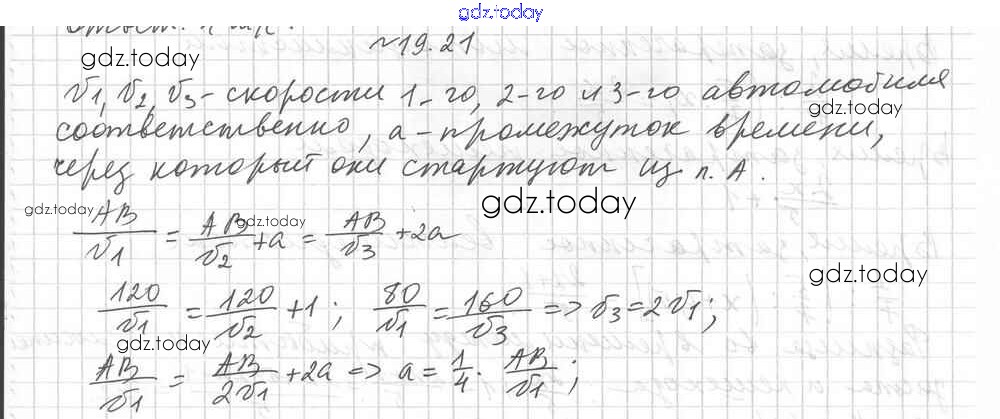 gdz.today
№19.21
gdz.today
v1, v2, v3 - скорости 1-го, 2-го и 3-го автомобиля
gdz.today
соответственно, a - промежуток времени,
через который они стартуют из п. А.
gdz.today gdz.today gdz.today
AB/v1 = AB/v2 + a = AB/v3 + 2a
gdz.today
120/v1 = 120/v2 + 1; 80/v1 = 160/v3 => v3 = 2v1;
gdz.today
AB/v1 = AB/2v1 + 2a => a = 1/4 · AB/v1;